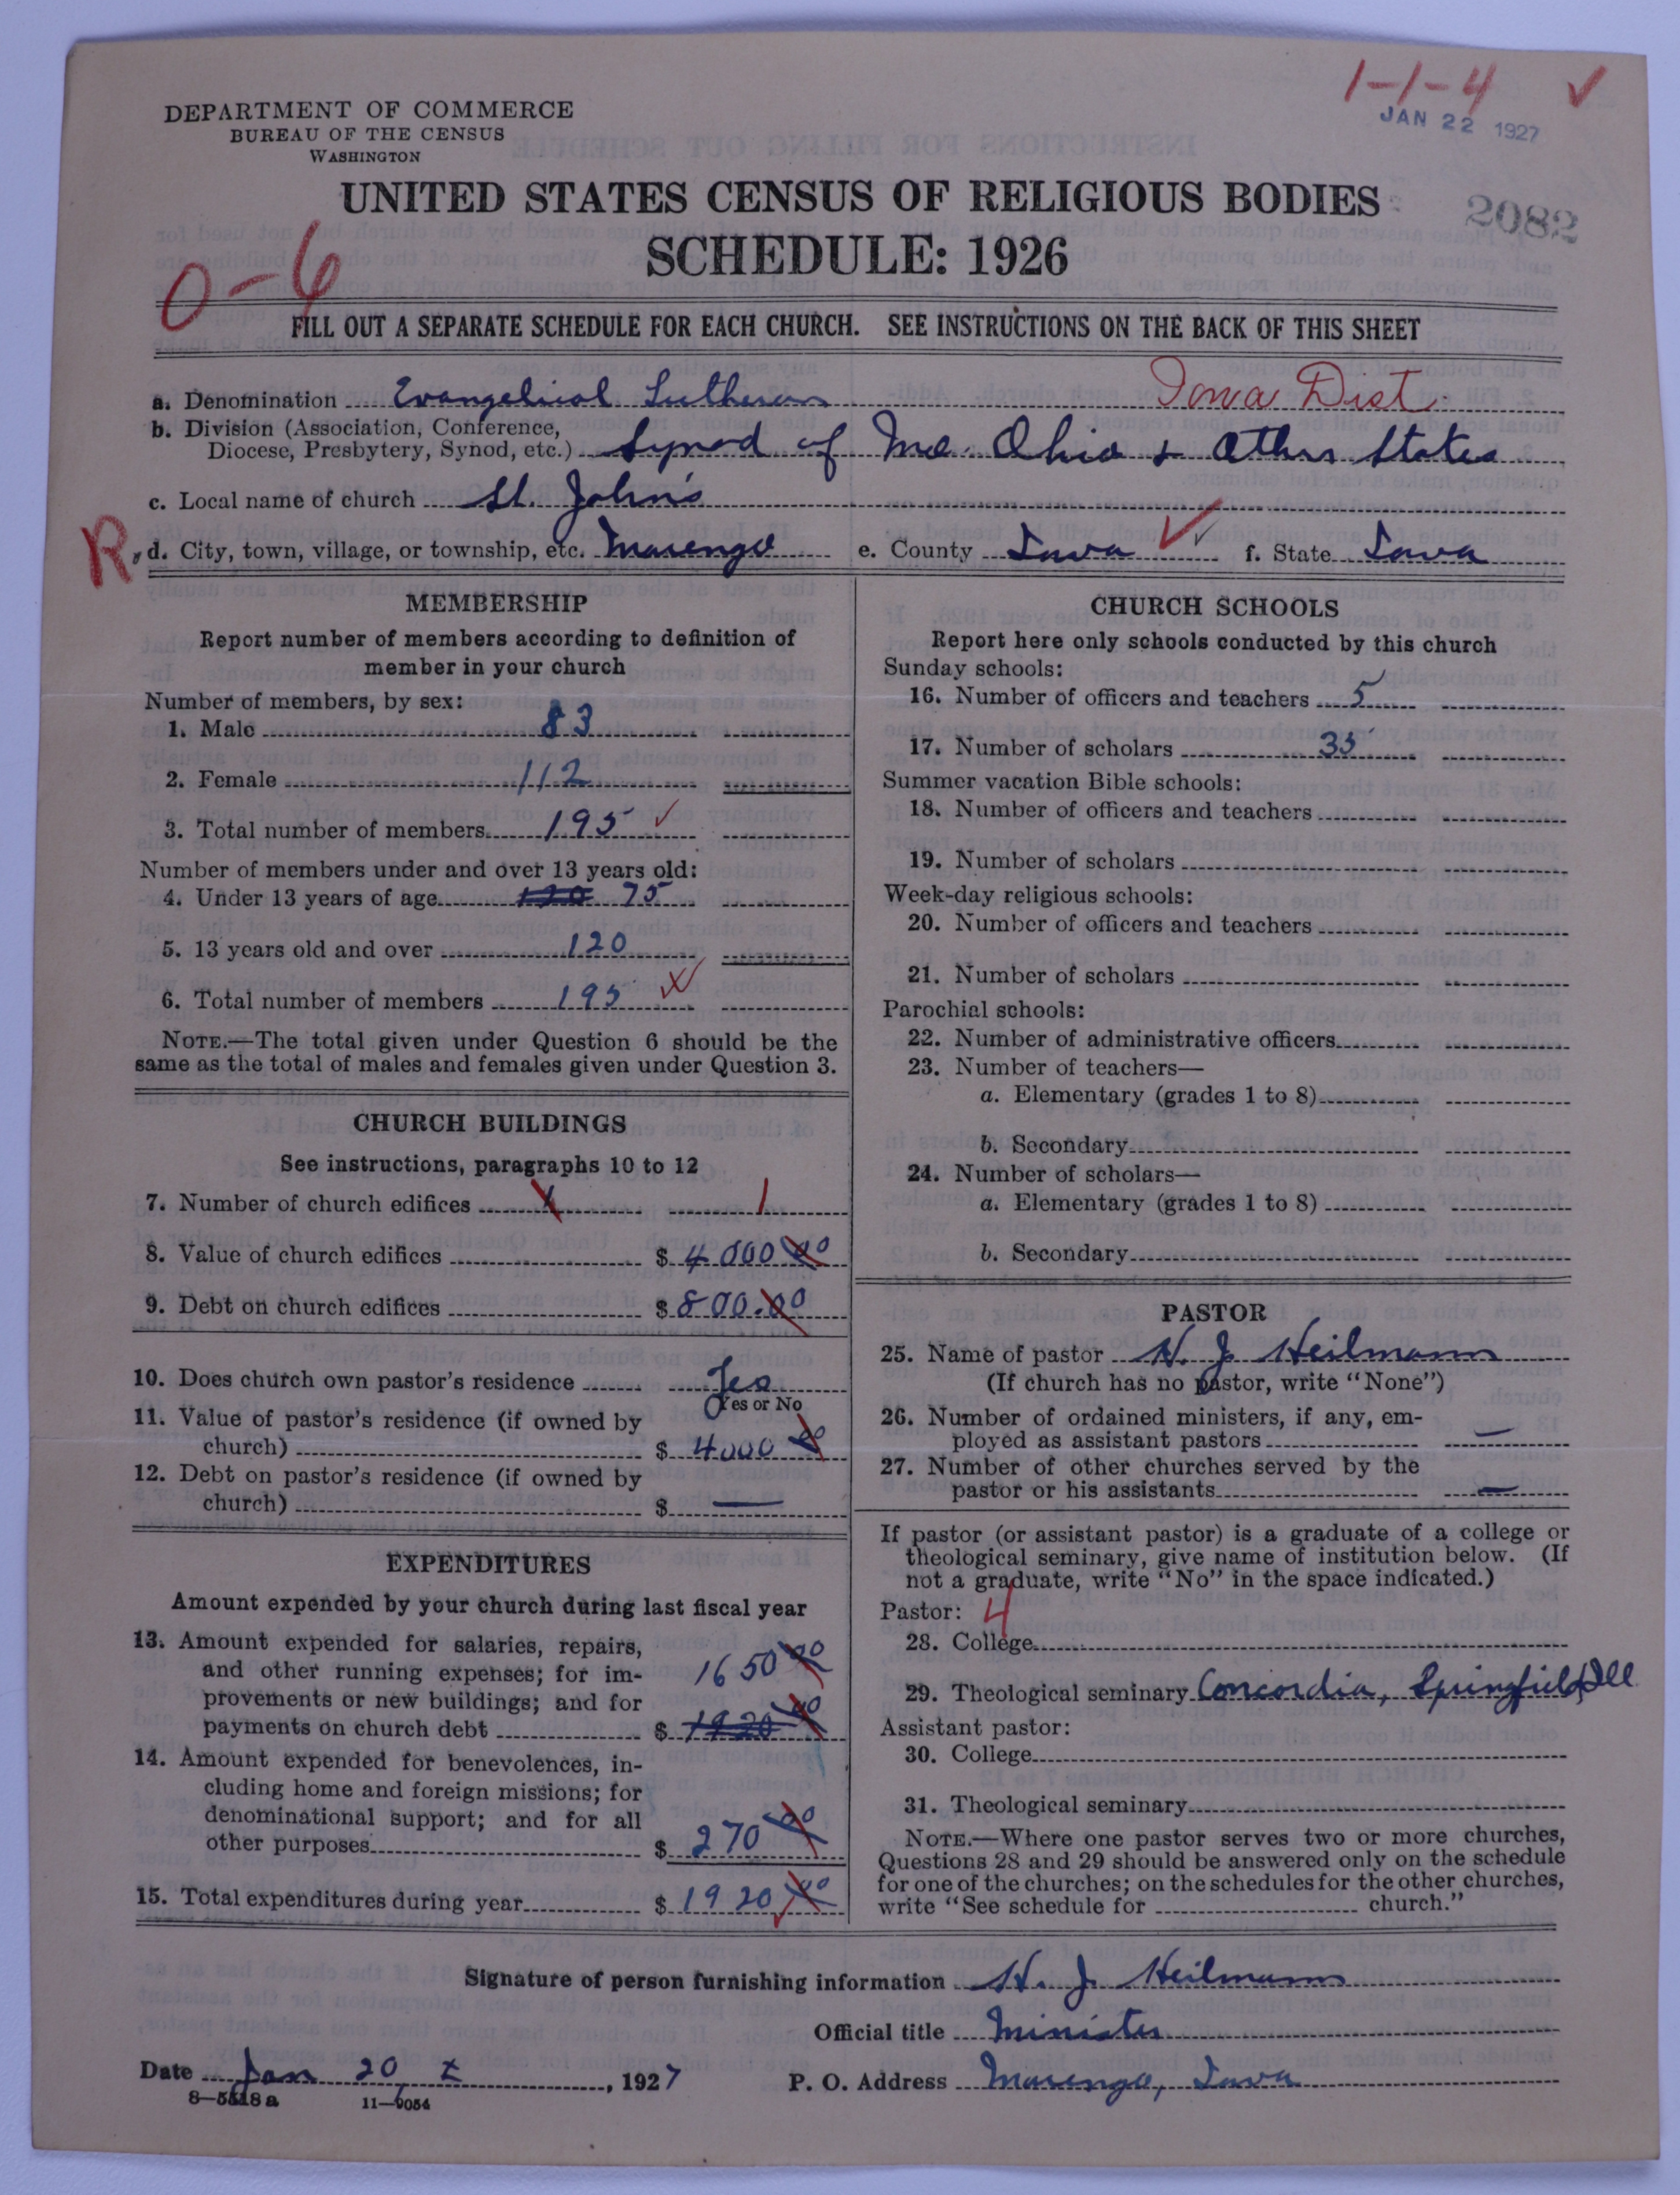 1-1-4 ✓
JAN 22 1927
DEPARTMENT OF COMMERCE
BUREAU OF THE CENSUS
WASHINGTON
UNITED STATES CENSUS OF RELIGIOUS BODIES
2082
SCHEDULE: 1926
0-6
FILL OUT A SEPARATE SCHEDULE FOR EACH CHURCH. SEE INSTRUCTIONS ON THE BACK OF THIS SHEET
a. Denomination Evangelical Lutheran Iowa Dist.
b. Division (Association, Conference,
Diocese, Presbytery, Synod, etc.) Synod of Mo. Ohio & Others States
c. Local name of church St. John's
R d. City, town, village, or township, etc. Marengo e. County Iowa ✓ f. State Iowa
MEMBERSHIP
Report number of members according to definition of
member in your church
Number of members, by sex:
1. Male 83
2. Female 112
3. Total number of members 195 ✓
Number of members under and over 13 years old:
4. Under 13 years of age 120 75
5. 13 years old and over 120
6. Total number of members 195
NOTE.—The total given under Question 6 should be the
same as the total of males and females given under Question 3.
CHURCH BUILDINGS
See instructions, paragraphs 10 to 12
7. Number of church edifices 1 1
8. Value of church edifices $ 4000 00
9. Debt on church edifices $ 800.00
10. Does church own pastor's residence Yes
Yes or No
11. Value of pastor's residence (if owned by
church) $ 4000 00
12. Debt on pastor's residence (if owned by
church) $ —
EXPENDITURES
Amount expended by your church during last fiscal year
13. Amount expended for salaries, repairs,
and other running expenses; for im- 1650 00
provements or new buildings; and for
payments on church debt $ 1920 00
14. Amount expended for benevolences, in-
cluding home and foreign missions; for
denominational support; and for all
other purposes $ 270 00
15. Total expenditures during year $ 1920 00
CHURCH SCHOOLS
Report here only schools conducted by this church
Sunday schools:
16. Number of officers and teachers 5
17. Number of scholars 35
Summer vacation Bible schools:
18. Number of officers and teachers
19. Number of scholars
Week-day religious schools:
20. Number of officers and teachers
21. Number of scholars
Parochial schools:
22. Number of administrative officers
23. Number of teachers—
a. Elementary (grades 1 to 8)
b. Secondary
24. Number of scholars—
a. Elementary (grades 1 to 8)
b. Secondary
PASTOR
25. Name of pastor H. J. Heilmann
(If church has no pastor, write "None")
26. Number of ordained ministers, if any, em-
ployed as assistant pastors —
27. Number of other churches served by the
pastor or his assistants —
If pastor (or assistant pastor) is a graduate of a college or
theological seminary, give name of institution below. (If
not a graduate, write "No" in the space indicated.)
Pastor: 4
28. College
29. Theological seminary Concordia, Springfield, Ill
Assistant pastor:
30. College
31. Theological seminary
NOTE.—Where one pastor serves two or more churches,
Questions 28 and 29 should be answered only on the schedule
for one of the churches; on the schedules for the other churches,
write "See schedule for church."
Signature of person furnishing information H. J. Heilmann
Official title Minister
Date Jan 20, 1927 P. O. Address Marengo, Iowa
11—9054